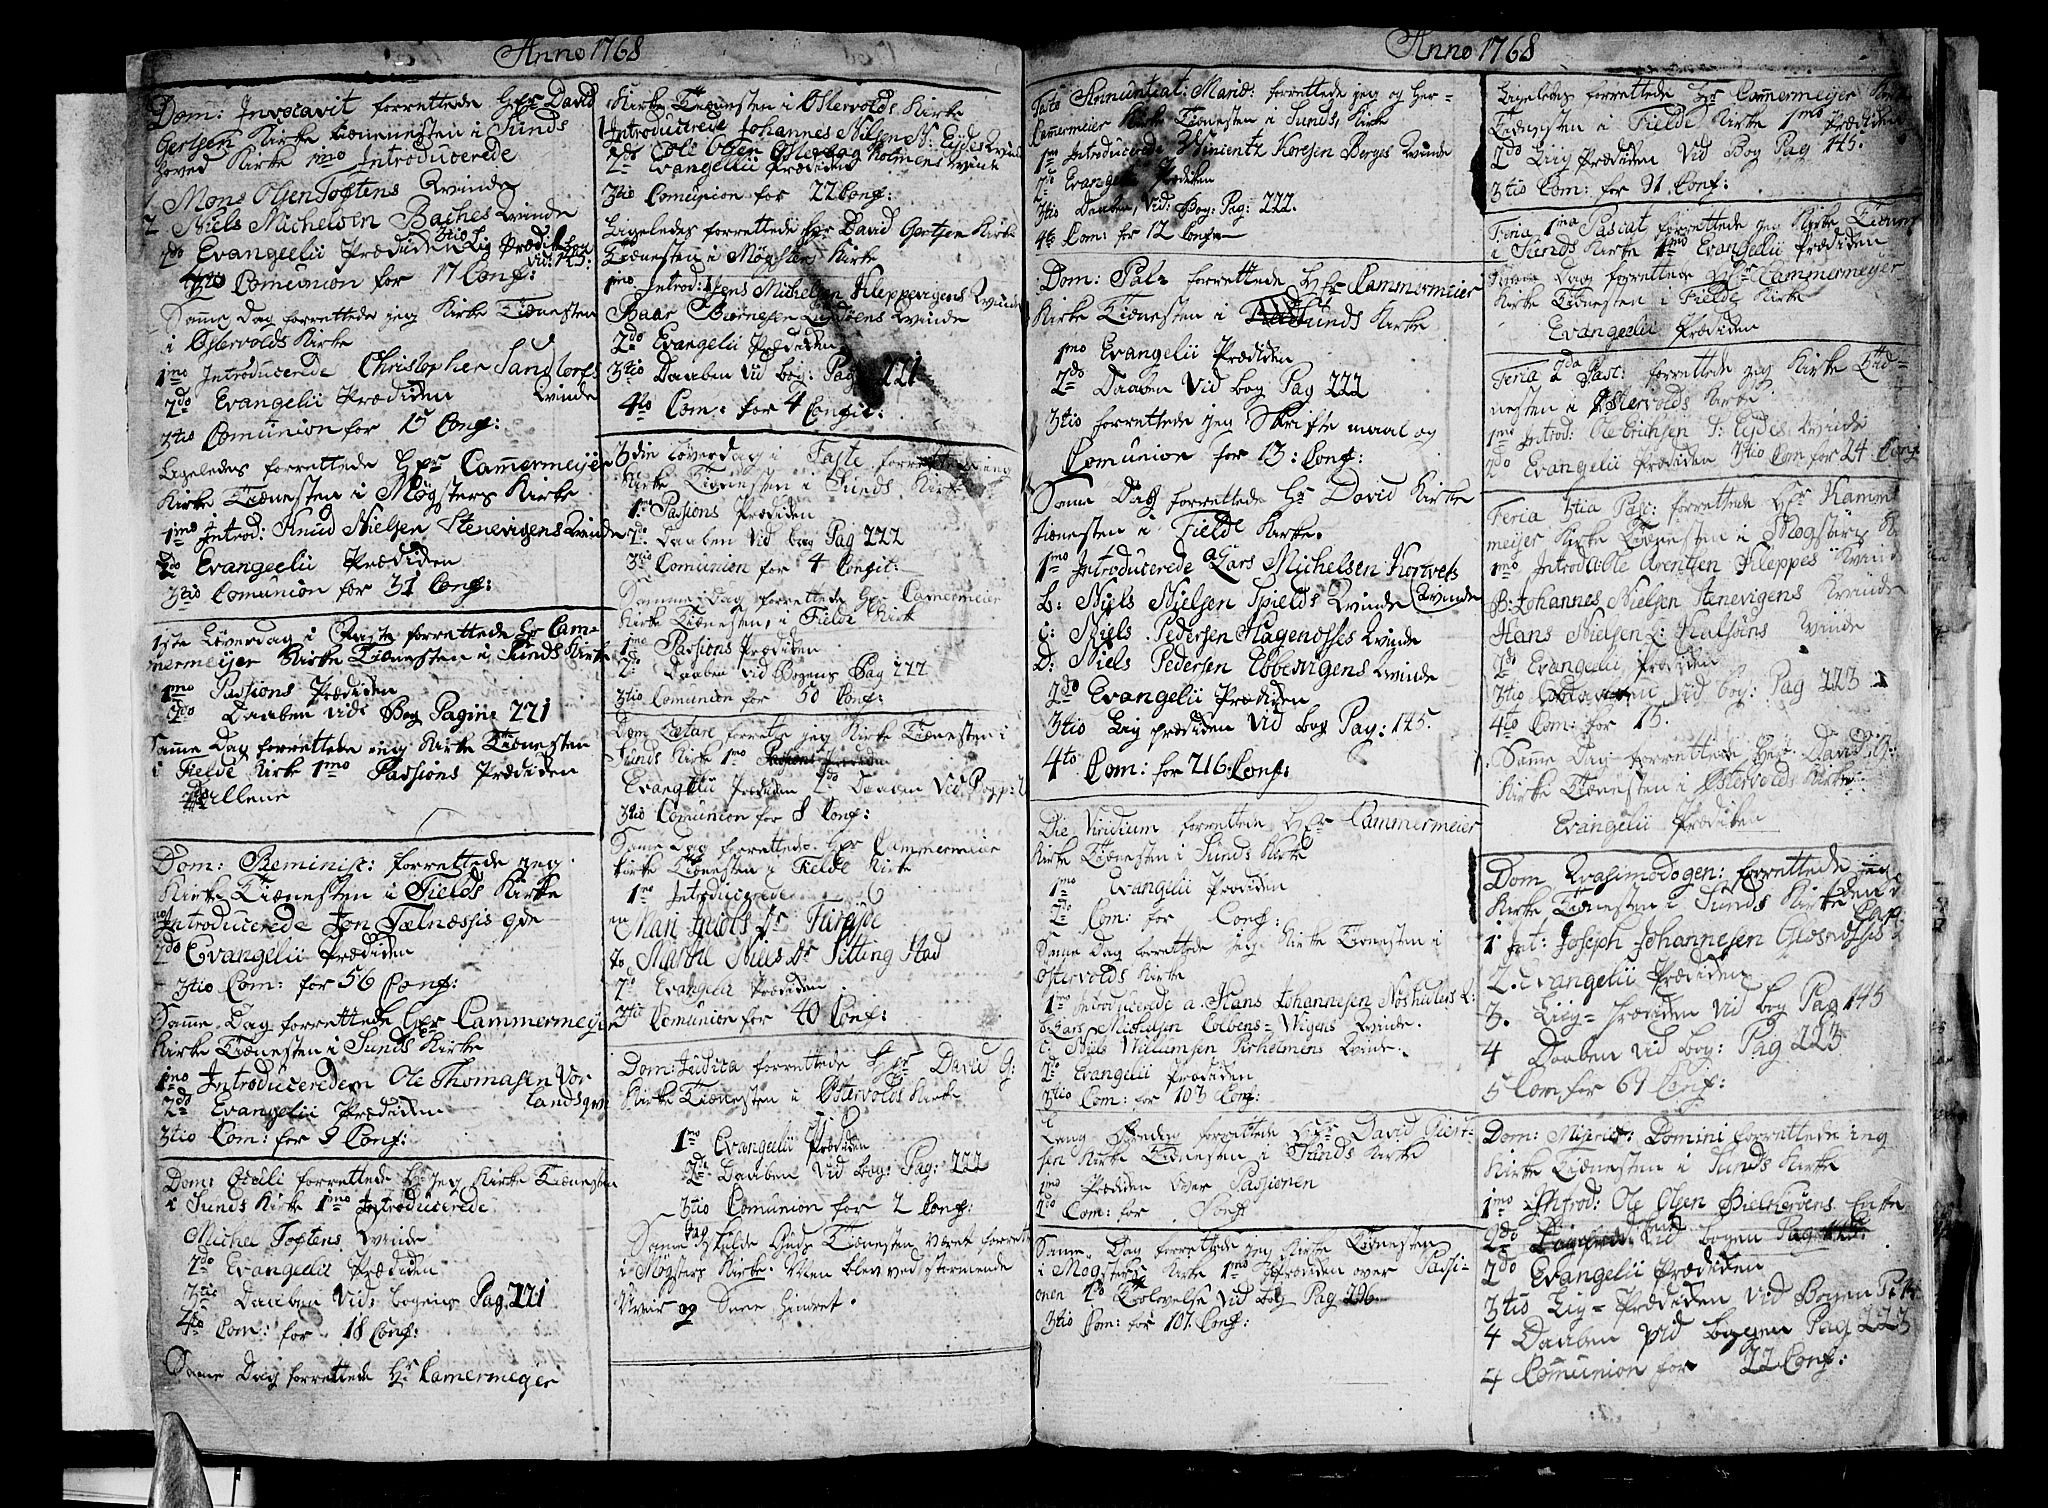 Anno 1768
Dom: Invocavit forrettede Hr David
Gertsen Kirke Tiennesten i Sunds
Hoved Kirke 1mo Introducerede
1. Mons Olsen Toftens Qvinde
2 Niels Michelsen Baches Qvinde
2do Evangelii Prædiken 3tio Lig Prædiken
vid: 145.
4to Comunion for 17 Conf:
Samme Dag forrettede jeg Kirke Tienesten
i Østervolds Kirke
1mo Introducerede Christopher Sangtorfs
2do Evangelii Prædiken Qvinde
3tio Comunion for 15 Conf:
Ligeledes forrettede Hr Cammermeijer
Kirke Tienesten i Møgsters Kirke
1mo Introd: Knud Nielsen Stenevigens Qvinde
2do Evangelii Prædiken
3tio Comunion for 31 Conf:
1ste Løverdag i Faste forrettede Hr Cam-
mermeijer Kirke Tienesten i Sunds Kirke
1mo Passions Prædiken
2do Daaben vid: Bog Pagin: 221
Samme Dag forrettede jeg Kirke Tienesten
i Fielde Kirke 1mo Passions Prædiken
Dom: Reminisc: forrettede jeg
Kirke Tienesten i Fields Kirke
Introducerede Jon Telnæssis qde
2do Evangelii Prædiken
3tio Com: for 56 Conf:
Samme Dag forrettede Hr Cammermeijer
Kirke Tienesten i Sunds Kirke
1mo Introducereden Ole Thomasen Vor
2do Evangelii Prædiken lands qvi
3tio Com: for 9 Conf:
Dom: Oculi forrettede jeg Kirke Tienesten
i Sunds Kirke 1mo Introducerede
Michel Toftens Qvinde
2do Evangelii Prædiken
3tio Daaben vid: bogens Pag 221
4to Com: for 18 Conf:
Samme Dag forrettede Hr Camermeyer
Kirke Tienesten i Østervolds Kirke
Introducerede Johannes Nilsen N: Eydes Qvinde
2do Ole Olsen Holmens Qvinde
2do Evangelii Prædiken
3tio Comunion for 22 Conf:
Ligeledes forrettede Hr David Gertsen Kirke
Tienesten i Møgster Kirke
1mo Introd: Jens Michelsen Kleppevigens Qvinde
Baar Biørnesen Qvinde
2do Evangelii Prædiken
3tio Daaben Vid bog: Pag 221
4to Com: for 4 Confit:
3die Løverdag i Faste forrettede jeg
Kirke Tienesten i Sunds Kirke
1mo Passions Prædiken
2do Daaben vid bog Pag 222
3tio Comunion for 4 Confit:
Samme Dag forrettede Hr Camermeier
Kirke Tienesten i Fielde Kirk
1mo Passions Prædiken
2do Daaben vid Bogens Pag 222
3tio Comunion for 50 Conf:
Dom Lætare forrette jeg Kirke Tienesten i
Sunds Kirke 1mo
Evangelii Prædiken 2do Daaben Vid
3tio Comunion for 8 Conf:
Samme Dag forrettede Hr Cammermeier
Kirke Tienesten i Fielde Kirke
1mo Introducerede
Mari Jacobs Dr
Marthe Niels Dr
2do Evangelii Prædiken
3tio Comunion for 40 Conf:
Dom: Judica forrettede Hr David G:
Kirke Tienesten i Østervolds Kirke
1mo Evangelii Prædiken
2do Daaben Vid bog: Pag: 222
3tio Comunion for 2 Conf:
Samme Dag skulde Guds Tienesten været forrett
i Møgsters Kirke. Men blev ved stormende
Veir og Snee hindret.
Anno 1768
Festo Annuntiat: Mariæ: forrettede jeg og Her-
Cammermeier Kirke Tienesten i Sunds Kirke
1mo Introducerede Vincentz Berges Qvinde
2do Evangelii Prædiken
3tio Daaben, vid: Bog: Pag: 222.
4to Com: for 12 Conf
Dom: Pal: forrettede Hr Cammermeier
Kirke Tienesten i Sunds Kirke
1mo Evangelii Prædiken
2do Daaben Vid bog Pag 222
3tio forrettede jeg Skrifte maal og
Comunion for 13: Conf:
Samme Dag forrettede Hr David Kirke
tienesten i Fielde Kirke.
1mo Introducerede a Lars Michelsen
Qvinde
b: Niels Nielsen Qvinde
c: Niels Pedersen Hagenæsses Qvinde
D: Niels Pedersen Ebbevigens Qvinde
2do Evangelii Prædiken
3tio Liig prædiken Vid bog Pag: 145.
4to Com: for 216 Conf:
Die Viridium forrettede Hr Cammermeier
Kirke Tienesten i Sunds Kirke
1mo Evangelii Prædiken
2do Com: for Conf:
Samme Dag forrettede jeg Kirke Tienesten i
Østervolds Kirke
1mo Introducerede a Hans Johannesen
b: Lars Michelsen Qvinde.
c: Niels Willumsen Qvinde.
2do Evangelii Prædiken
3tio Com: for 103 Conf:
Lang Fredag forrettede Hr David Giert-
sen Kirke Tienesten i Sunds Kirke
1mo Prædiken over Passionen
2do Com: for Conf
Samme Dag forrettede jeg Kirke Tienesten
i Møgsters Kirke 1mo Prædiken over Passi-
onen 2do Trolovelse vid bog Pag
3tio Com: for 101 Conf:
Ligeledes forrettede Hr Cammermeijer Kirke
Tienesten i Fielde Kirke 1mo Prædiken
2do Liig Prædiken Vid Bog Pag 145.
3tio Com: for 91 Conf:
Feria 1ma Pascat forrettede jeg Kirke Tienest
i Sunds Kirke 1mo Evangelii Prædiken
Samme Dag forrettede Hr Cammermeijer
Kirke Tienesten i Fielde Kirke
Evangelii Prædiken
Feria 2da Past: forrettede jeg Kirke Tie-
nesten i Østervolds Kirke
1mo Introd: Ole Erichsen Eydes Qvinde
2do Evangelii Prædiken 3tio Com for 24 Conf
Feria 3tia Pas: forrettede Hr Kamme
meijer Kirke Tienesten i Møgsters
1mo Introd: a Ole Arentsen Kleppes Qvind
B: Johannes Nielsen Stenevigens Qvinde
Hans Nielsen Qvinde
2do Evangelii Prædiken
3tio vid bog: Pag 223
4to Com: for 15.
Samme Dag forrettede Hr David G:
Kirke Tienesten i Østervolds Kirke
Evangelii Prædiken
Dom Qvasimodogen: forrettede jeg
Kirke Tienesten i Sunds Kirke
1 Int: Joseph Johannesen
2. Evangelii Prædiken
3. Liig Prædiken vid bog Pag 145
4 Daaben vid bog: Pag 223
5 Com for 69 Conf:
Dom: Miseric: Domini forrettede jeg
Kirke Tienesten i Sunds Kirke
1mo Introd: Ole Olsen Enke
2do Vid bogen
2do Evangelii Prædiken
3tio Liig-Prædiken Vid Bogen P. 14
4 Daaben vid bogen Pag 223
4 Communion for 22 Conf: